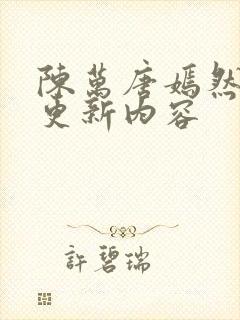 陳萬唐嫣然
更新內容
許碧瑞